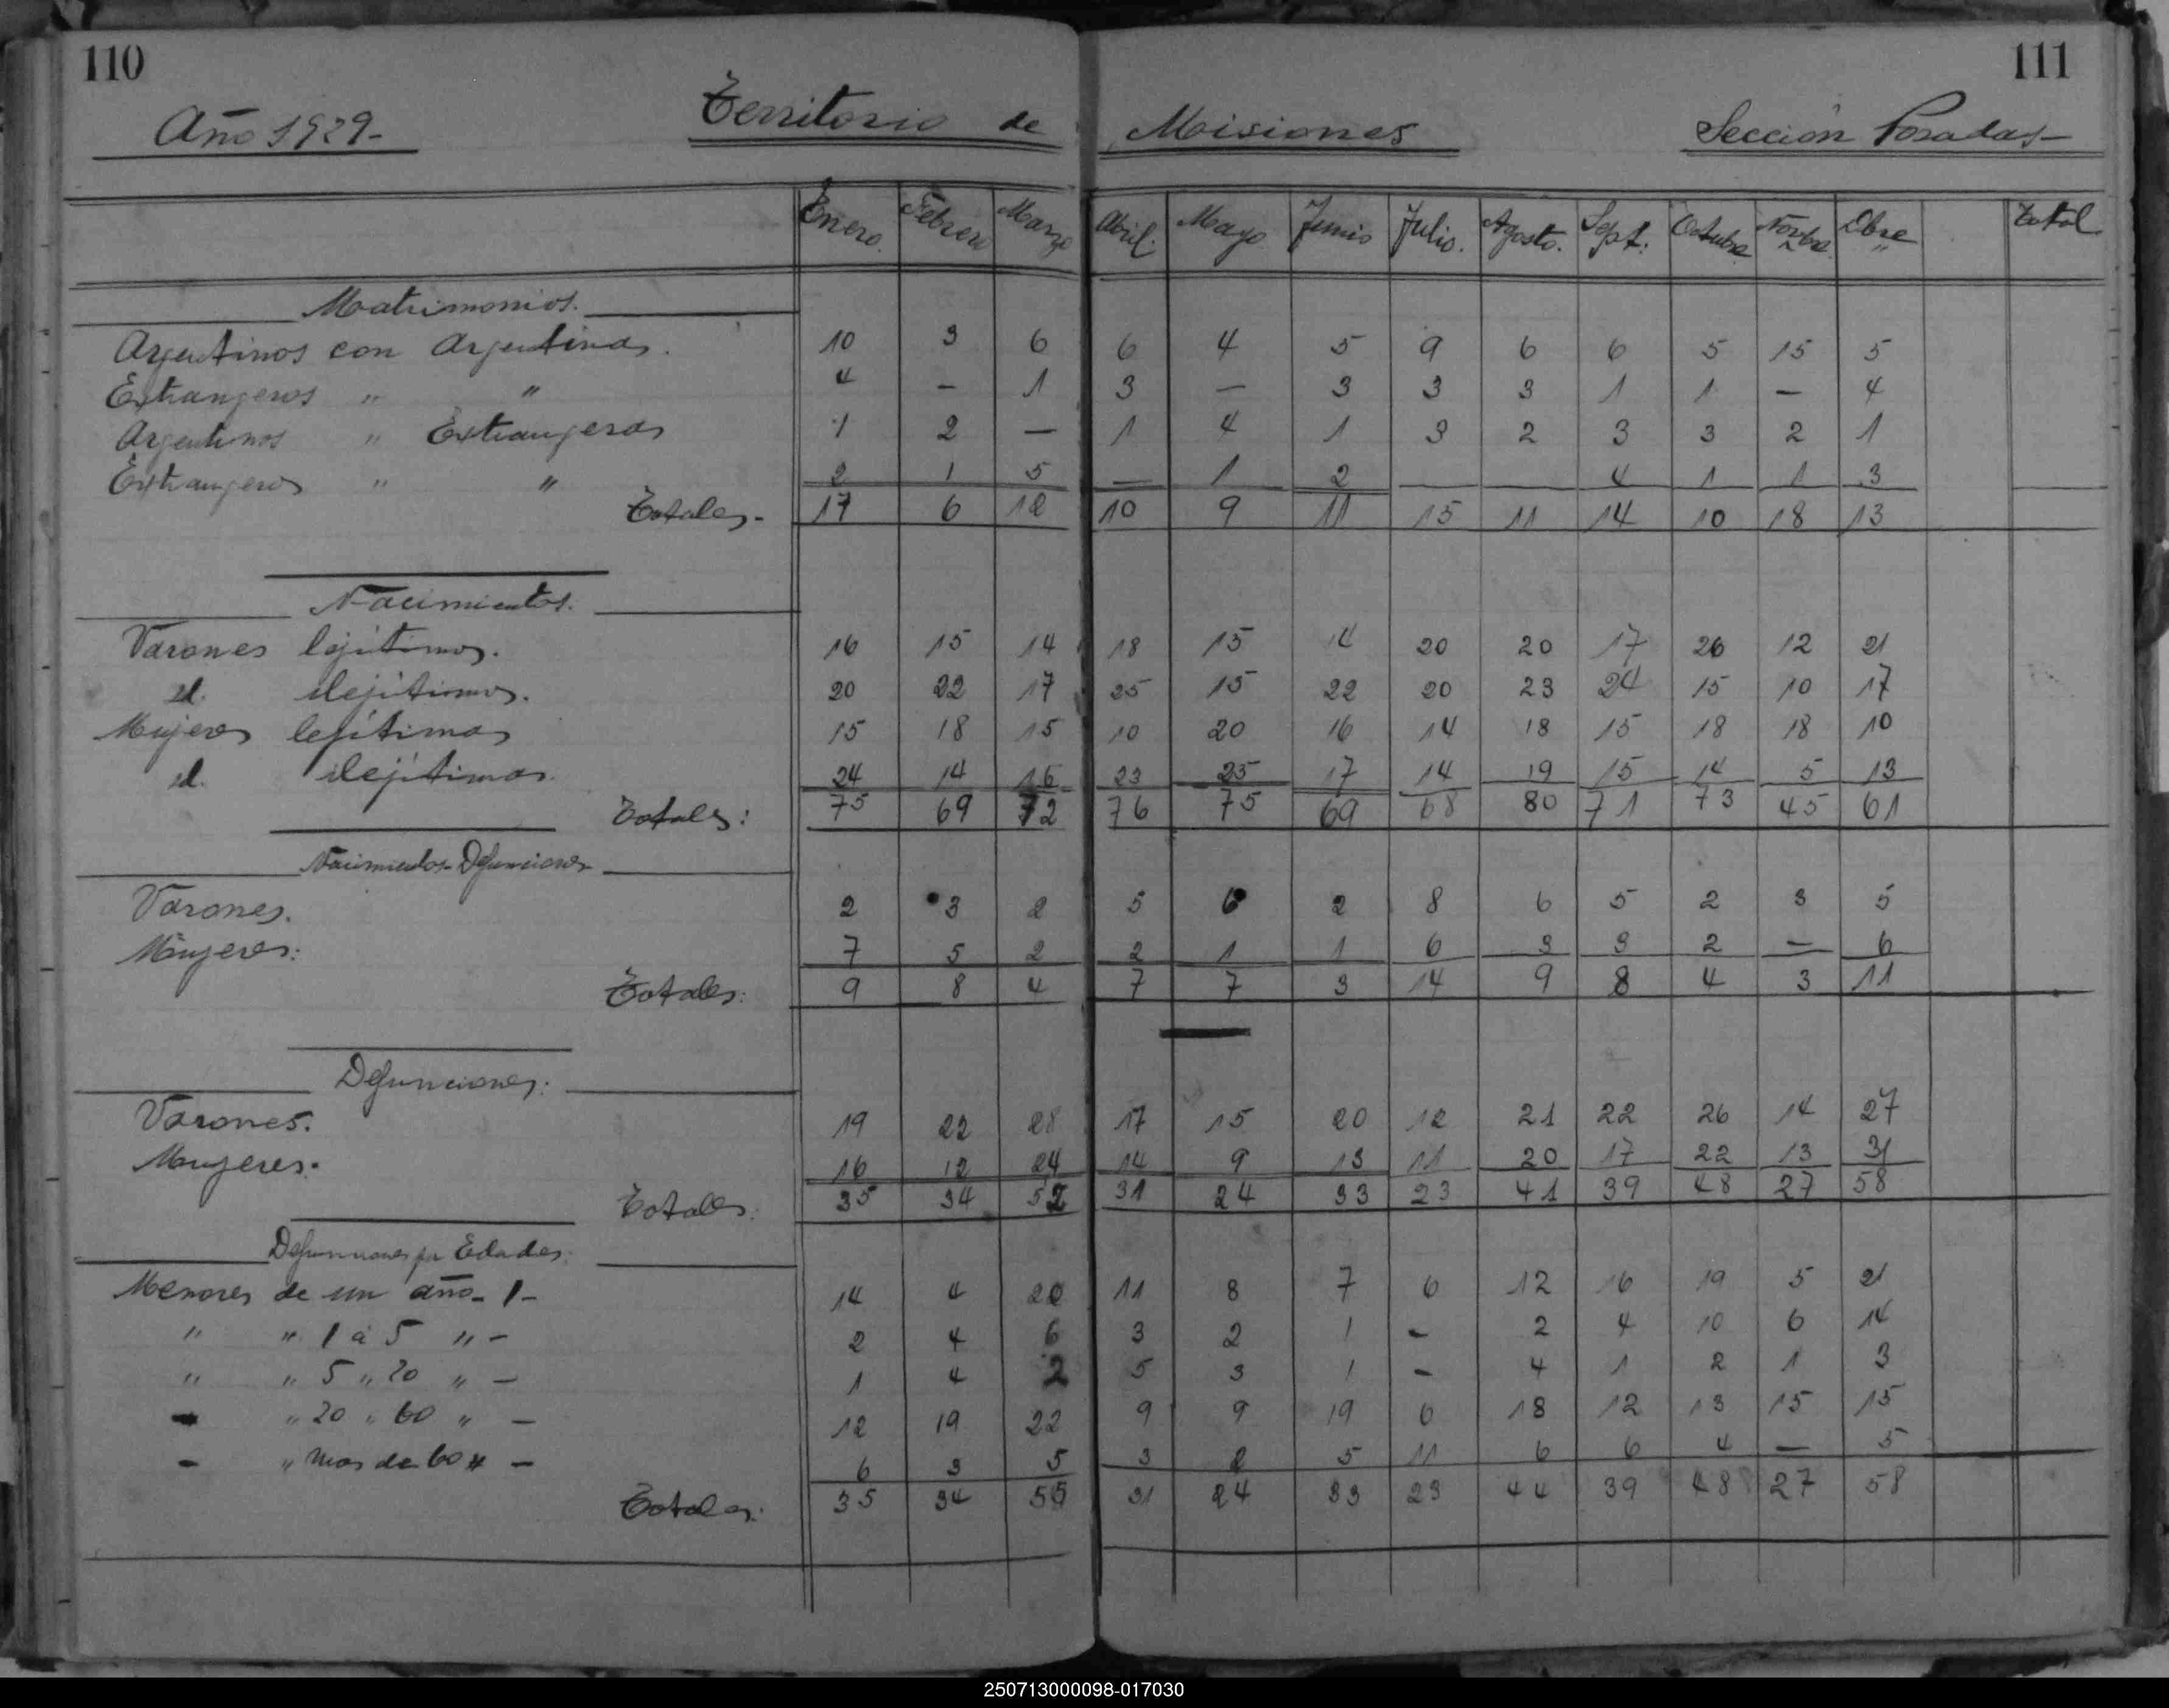 110
111
Año 1929-
Territorio de Misiones
Sección Posadas-
Enero. Febrero Marzo Abril. Mayo Junio Julio. Agosto. Sept. Octubre Novbre Dbre Total
Matrimonios.
Argentinos con Argentinas. 10 3 6 6 4 5 9 6 6 5 15 5
Extrangeros " " 4 — 1 3 — 3 3 3 1 1 — 4
Argentinos " Extrangeras 1 2 — 1 4 1 3 2 3 3 2 1
Extrangeros " " 2 1 5 — 1 2 — — 4 1 1 3
Totales- 17 6 12 10 9 11 15 11 14 10 18 13
Nacimientos.
Varones lejítimos. 16 15 14 18 15 14 20 20 17 26 12 21
id. ilejítimos. 20 22 17 25 15 22 20 23 24 15 10 17
Mujeres lejítimas 15 18 15 10 20 16 14 18 15 18 18 10
id. ilejítimas. 24 14 16 23 25 17 14 19 15 14 5 13
Totales: 75 69 72 76 75 69 68 80 71 73 45 61
Nacimientos-Defunciones
Varones. 2 3 2 5 6 2 8 6 5 2 3 5
Mujeres: 7 5 2 2 1 1 6 3 3 2 — 6
Totales: 9 8 4 7 7 3 14 9 8 4 3 11
Defunciones:
Varones. 19 22 28 17 15 20 12 21 22 26 14 27
Mujeres. 16 12 24 14 9 13 11 20 17 22 13 31
Totales. 35 34 52 31 24 33 23 41 39 48 27 58
Defunciones por Edades.
Menores de un año- 1- 14 4 20 11 8 7 6 12 16 19 5 21
" " 1 á 5 " - 2 4 6 3 2 1 - 2 4 10 6 14
" " 5 " 20 " - 1 4 2 5 3 1 - 4 1 2 1 3
- " 20 " 60 " - 12 19 22 9 9 19 6 18 12 13 15 15
- " mas de 60 " - 6 3 5 3 2 5 11 6 6 4 — 5
Totales. 35 34 55 31 24 33 23 44 39 48 27 58
250713000098-017030